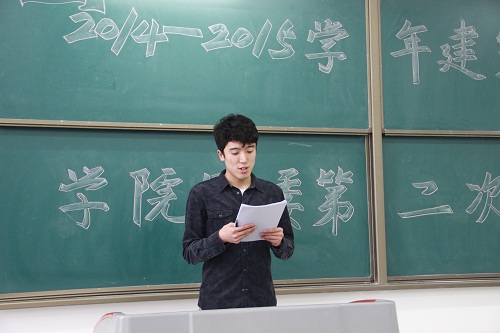 2014—2015学年建
学院 委第二次